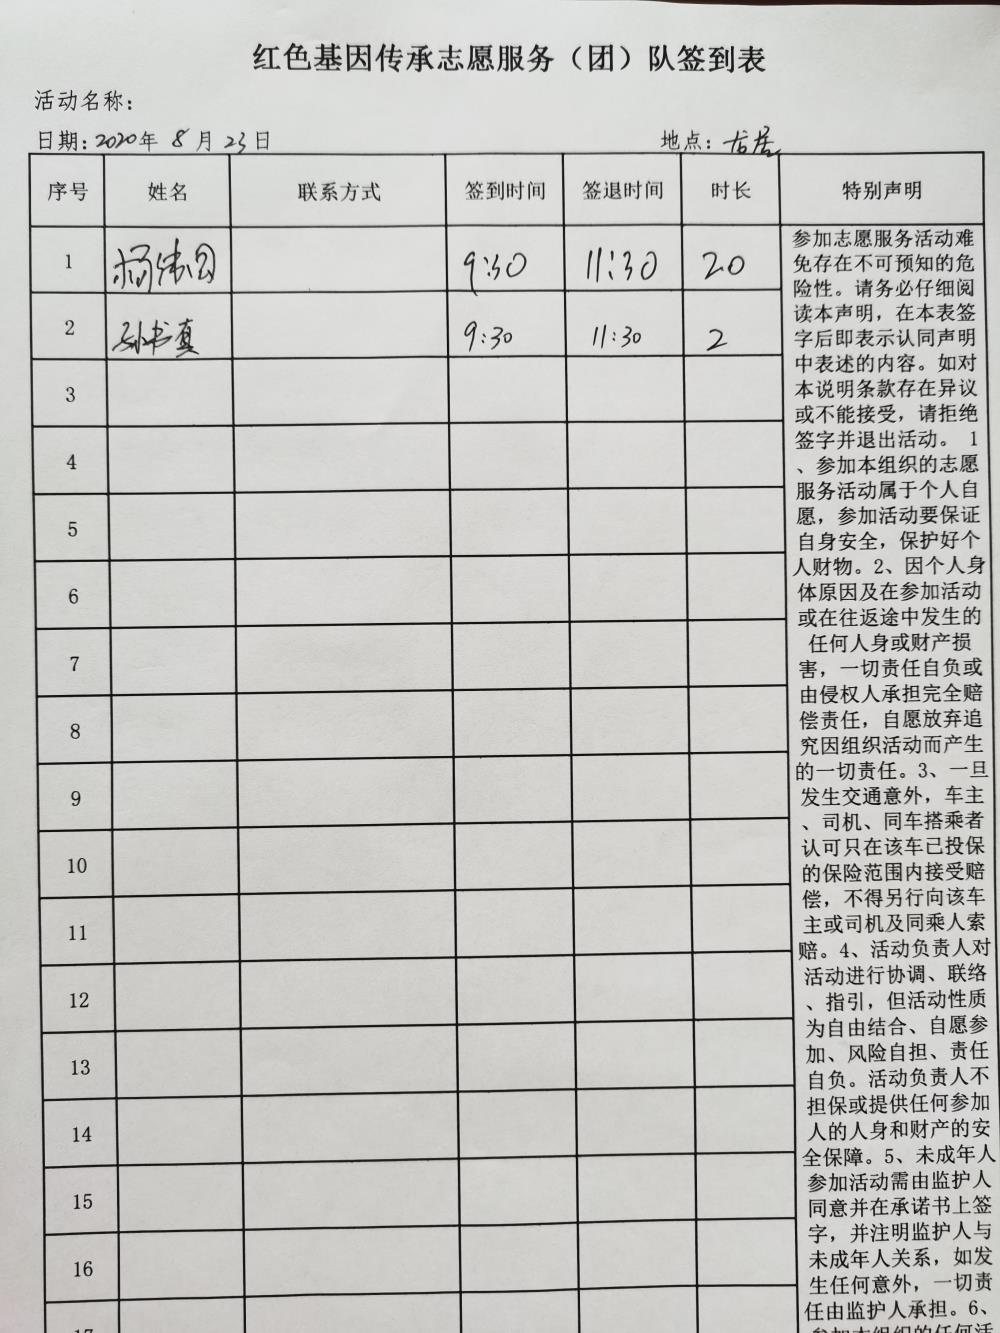 红色基因传承志愿服务（团）队签到表
活动名称：
日期：2020年 8 月 23 日 地点：古居
序号 姓名 联系方式 签到时间 签退时间 时长 特别声明
1 杨伟公 9:30 11:30 20
2 孙书真 9:30 11:30 2
3
4
5
6
7
8
9
10
11
12
13
14
15
16
17
参加志愿服务活动难
免存在不可预知的危
险性。请务必仔细阅
读本声明，在本表签
字后即表示认同声明
中表述的内容。如对
本说明条款存在异议
或不能接受，请拒绝
签字并退出活动。 1
、参加本组织的志愿
服务活动属于个人自
愿，参加活动要保证
自身安全，保护好个
人财物。2、因个人身
体原因及在参加活动
或在往返途中发生的
任何人身或财产损
害，一切责任自负或
由侵权人承担完全赔
偿责任，自愿放弃追
究因组织活动而产生
的一切责任。3、一旦
发生交通意外，车主
、司机、同车搭乘者
认可只在该车已投保
的保险范围内接受赔
偿，不得另行向该车
主或司机及同乘人索
赔。4、活动负责人对
活动进行协调、联络
、指引，但活动性质
为自由结合、自愿参
加、风险自担、责任
自负。活动负责人不
担保或提供任何参加
人的人身和财产的安
全保障。5、未成年人
参加活动需由监护人
同意并在承诺书上签
字，并注明监护人与
未成年人关系，如发
生任何意外，一切责
任由监护人承担。6、
参加本组织的任何活